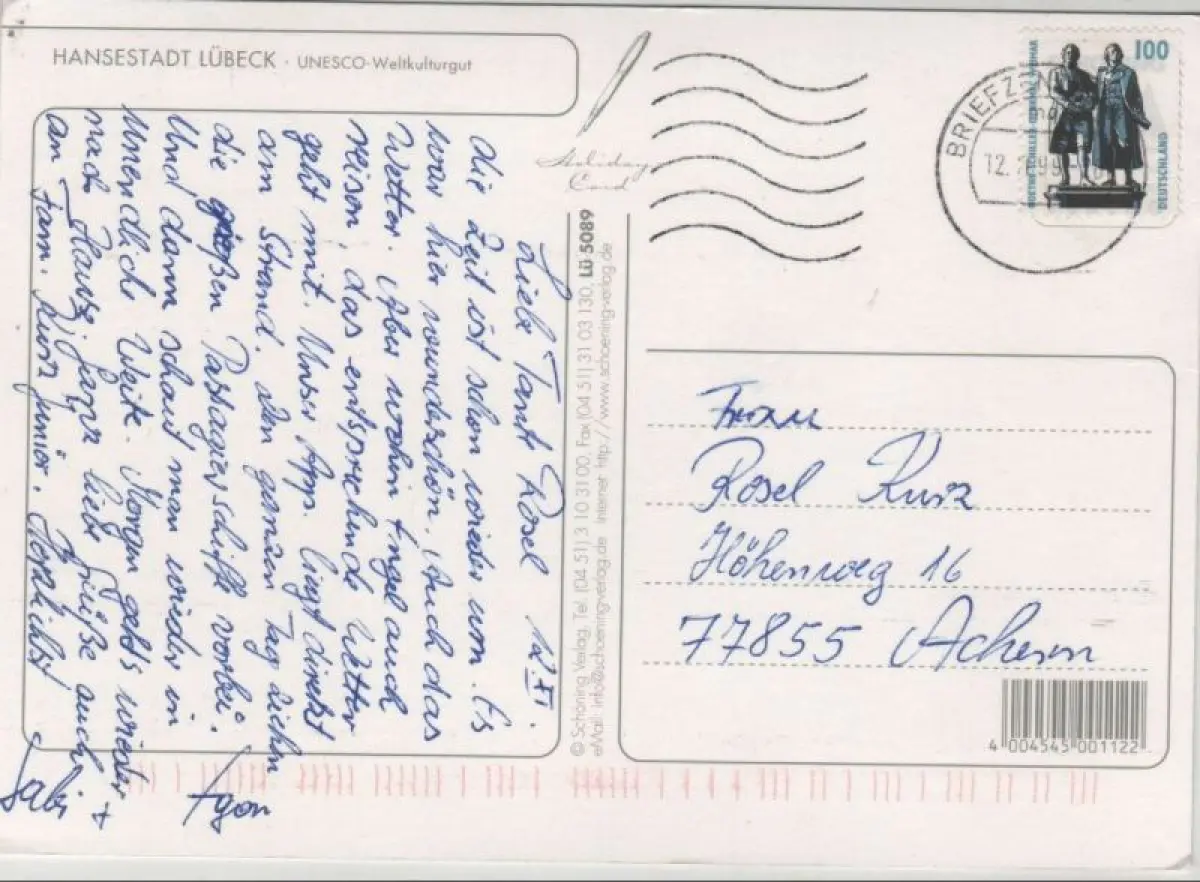 HANSESTADT LÜBECK · UNESCO-Weltkulturgut
Holiday
Card
Liebe Tante Rosel 12.XI.
die Zeit ist schon wieder um. Es
war hier wunderschön. Auch das
Wetter. Aber wohin Engel auch
reisen, das entsprechende Wetter
geht mit. Unser App. liegt direkt
am Strand. Den ganzen Tag ziehn
die großen Passagierschiffe vorbei.
Und dann schaut man wieder in
Unendliche Weite. Morgen geht's wieder
nach Hause. Ganz liebe Grüße auch
an Fam. Kurz Junior. Herzlichst
Gabi +
© Schöning Verlag, Tel. (04 51) 3 10 31 00, Fax (04 51) 31 03 130, Lü 5089
eMail: info@schoeningverlag.de internet: http://www.schoeningverlag.de
BRIEFZ
12.
100
DEUTSCHLAND
Frau
Rosel Kurz
Höhenweg 16
77855 Achern
4 004545 001122